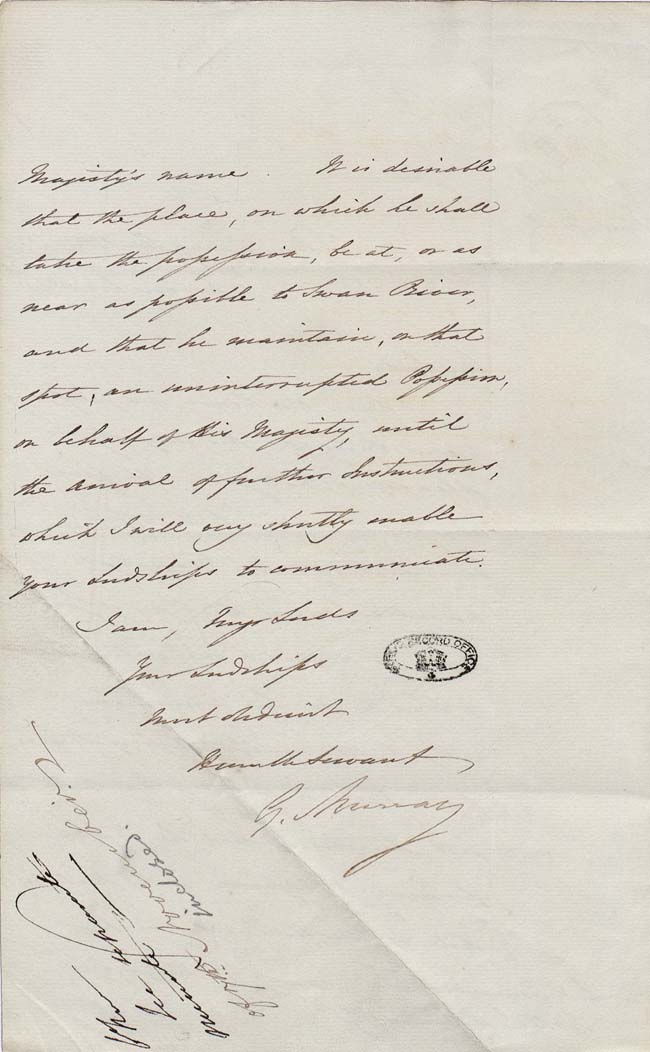 Majesty's name. It is desirable
that the place, on which he shall
take the possession, be at, or as
near as possible to Swan River,
and that he maintain, on that
spot, an uninterrupted Possession,
on behalf of His Majesty, until
the arrival of further Instructions,
which I will very shortly enable
your Lordships to communicate.
I am, My Lords
Your Lordships
Most obedient
Humble Servant
G. Murray
RECORD OFFICE
inclosed